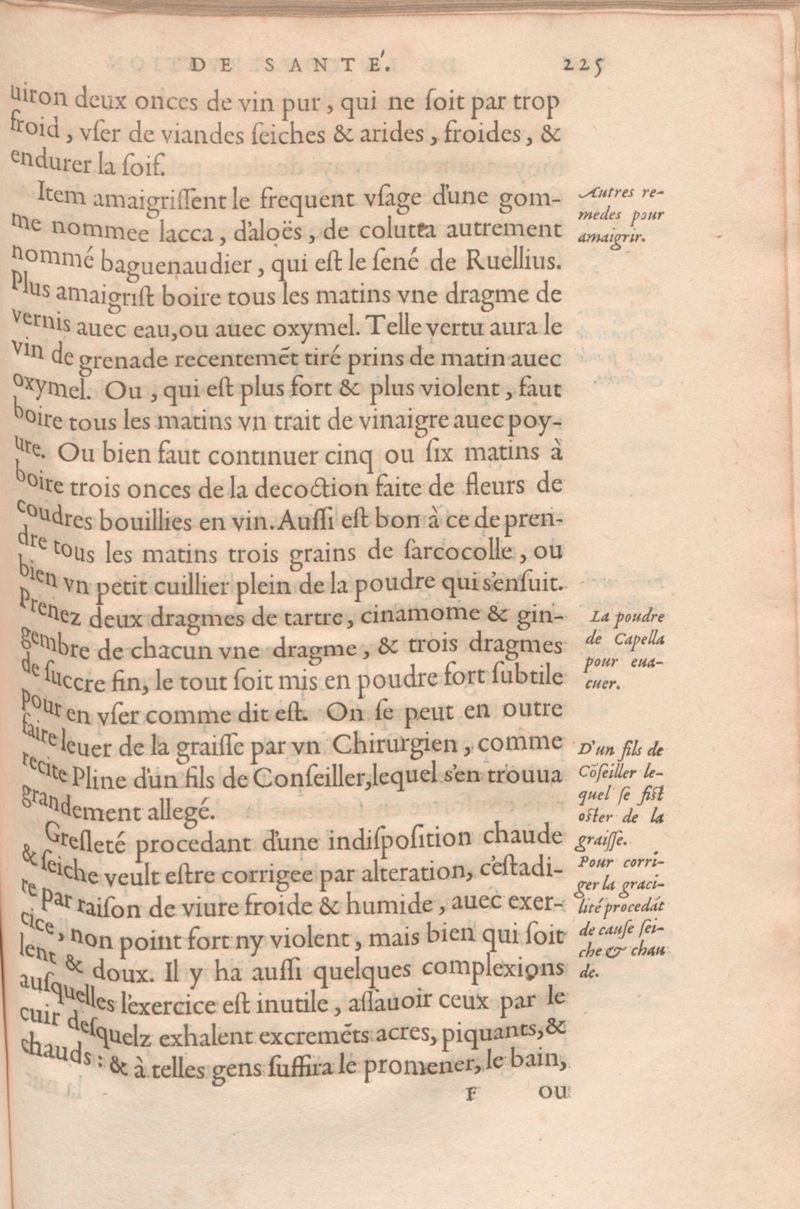 DE SANTÉ. 225
uiron deux onces de vin pur, qui ne ſoit par trop
froid, vſer de viandes ſeiches & arides, froides, &
endurer la ſoif.
Item amaigriſſent le frequent vſage d'une gom-
me nommee lacca, d'aloës, de colutea autrement
nommé baguenaudier, qui eſt le ſené de Ruellius.
Plus amaigriſt boire tous les matins vne dragme de
vernis auec eau,ou auec oxymel. Telle vertu aura le
vin de grenade recentemēt tiré prins de matin auec
oxymel. Ou, qui eſt plus fort & plus violent, faut
boire tous les matins vn trait de vinaigre auec poy-
ure. Ou bien faut continuer cinq ou ſix matins à
boire trois onces de la decoction faite de fleurs de
coudres bouillies en vin. Auſſi eſt bon à ce de pren-
dre tous les matins trois grains de ſarcocolle, ou
bien vn petit cuillier plein de la poudre qui s'enſuit.
Prenez deux dragmes de tartre, cinamome & gin-
gembre de chacun vne dragme, & trois dragmes
de ſuccre fin, le tout ſoit mis en poudre fort ſubtile
pour en vſer comme dit eſt. On ſe peut en outre
faire leuer de la graiſſe par vn Chirurgien, comme
recite Pline d'un fils de Conſeiller,lequel s'en trouua
grandement allegé.
Greſleté procedant d'une indiſpoſition chaude
& ſeiche veult eſtre corrigee par alteration, c'eſtadi-
re par raiſon de viure froide & humide, auec exer-
cice, non point fort ny violent, mais bien qui ſoit
lent & doux. Il y ha auſſi quelques complexions
auſquelles l'exercice eſt inutile, aſſauoir ceux par le
cuir deſquelz exhalent excremēts acres, piquants,&
chauds: & à telles gens ſuffira le promener, le bain,
F ou
Autres re-
medes pour
amaigrir.
La poudre
de Capella
pour eua-
cuer.
D'un fils de
Cōſeiller le-
quel ſe fiſt
oſter de la
graiſſe.
Pour corri-
ger la graci-
lité procedāt
de cauſe ſei-
che & chau
de.